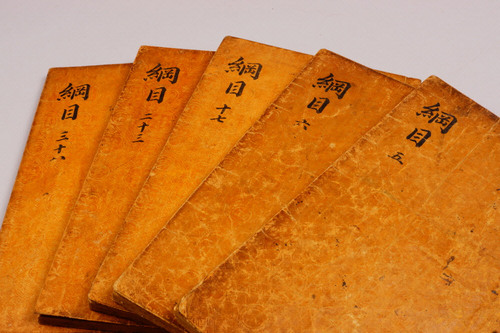 綱目
五
綱目
六
綱目
十七
綱目
二十三
綱目
三十八